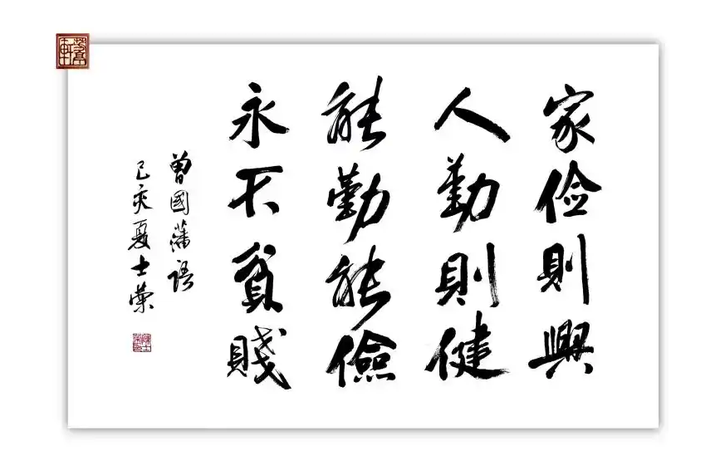 家俭則興
人勤則健
能勤能儉
永不貧賤
曾國藩語
己亥夏士葉